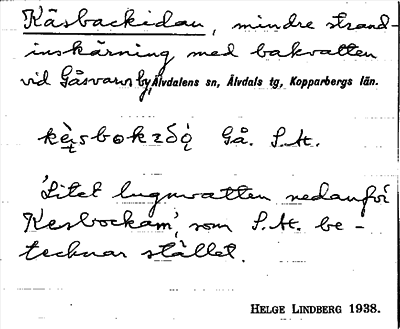 Käsbackidan, mindre strand-
inskärning med bakvatten
vid Gåsvarv by, Älvdalens sn, Älvdals tg, Kopparbergs län.
Gå. S.H.
'Litet lugnvatten nedanför
Kesbockam', som S.H. be-
tecknar stället.
HELGE LINDBERG 1938.